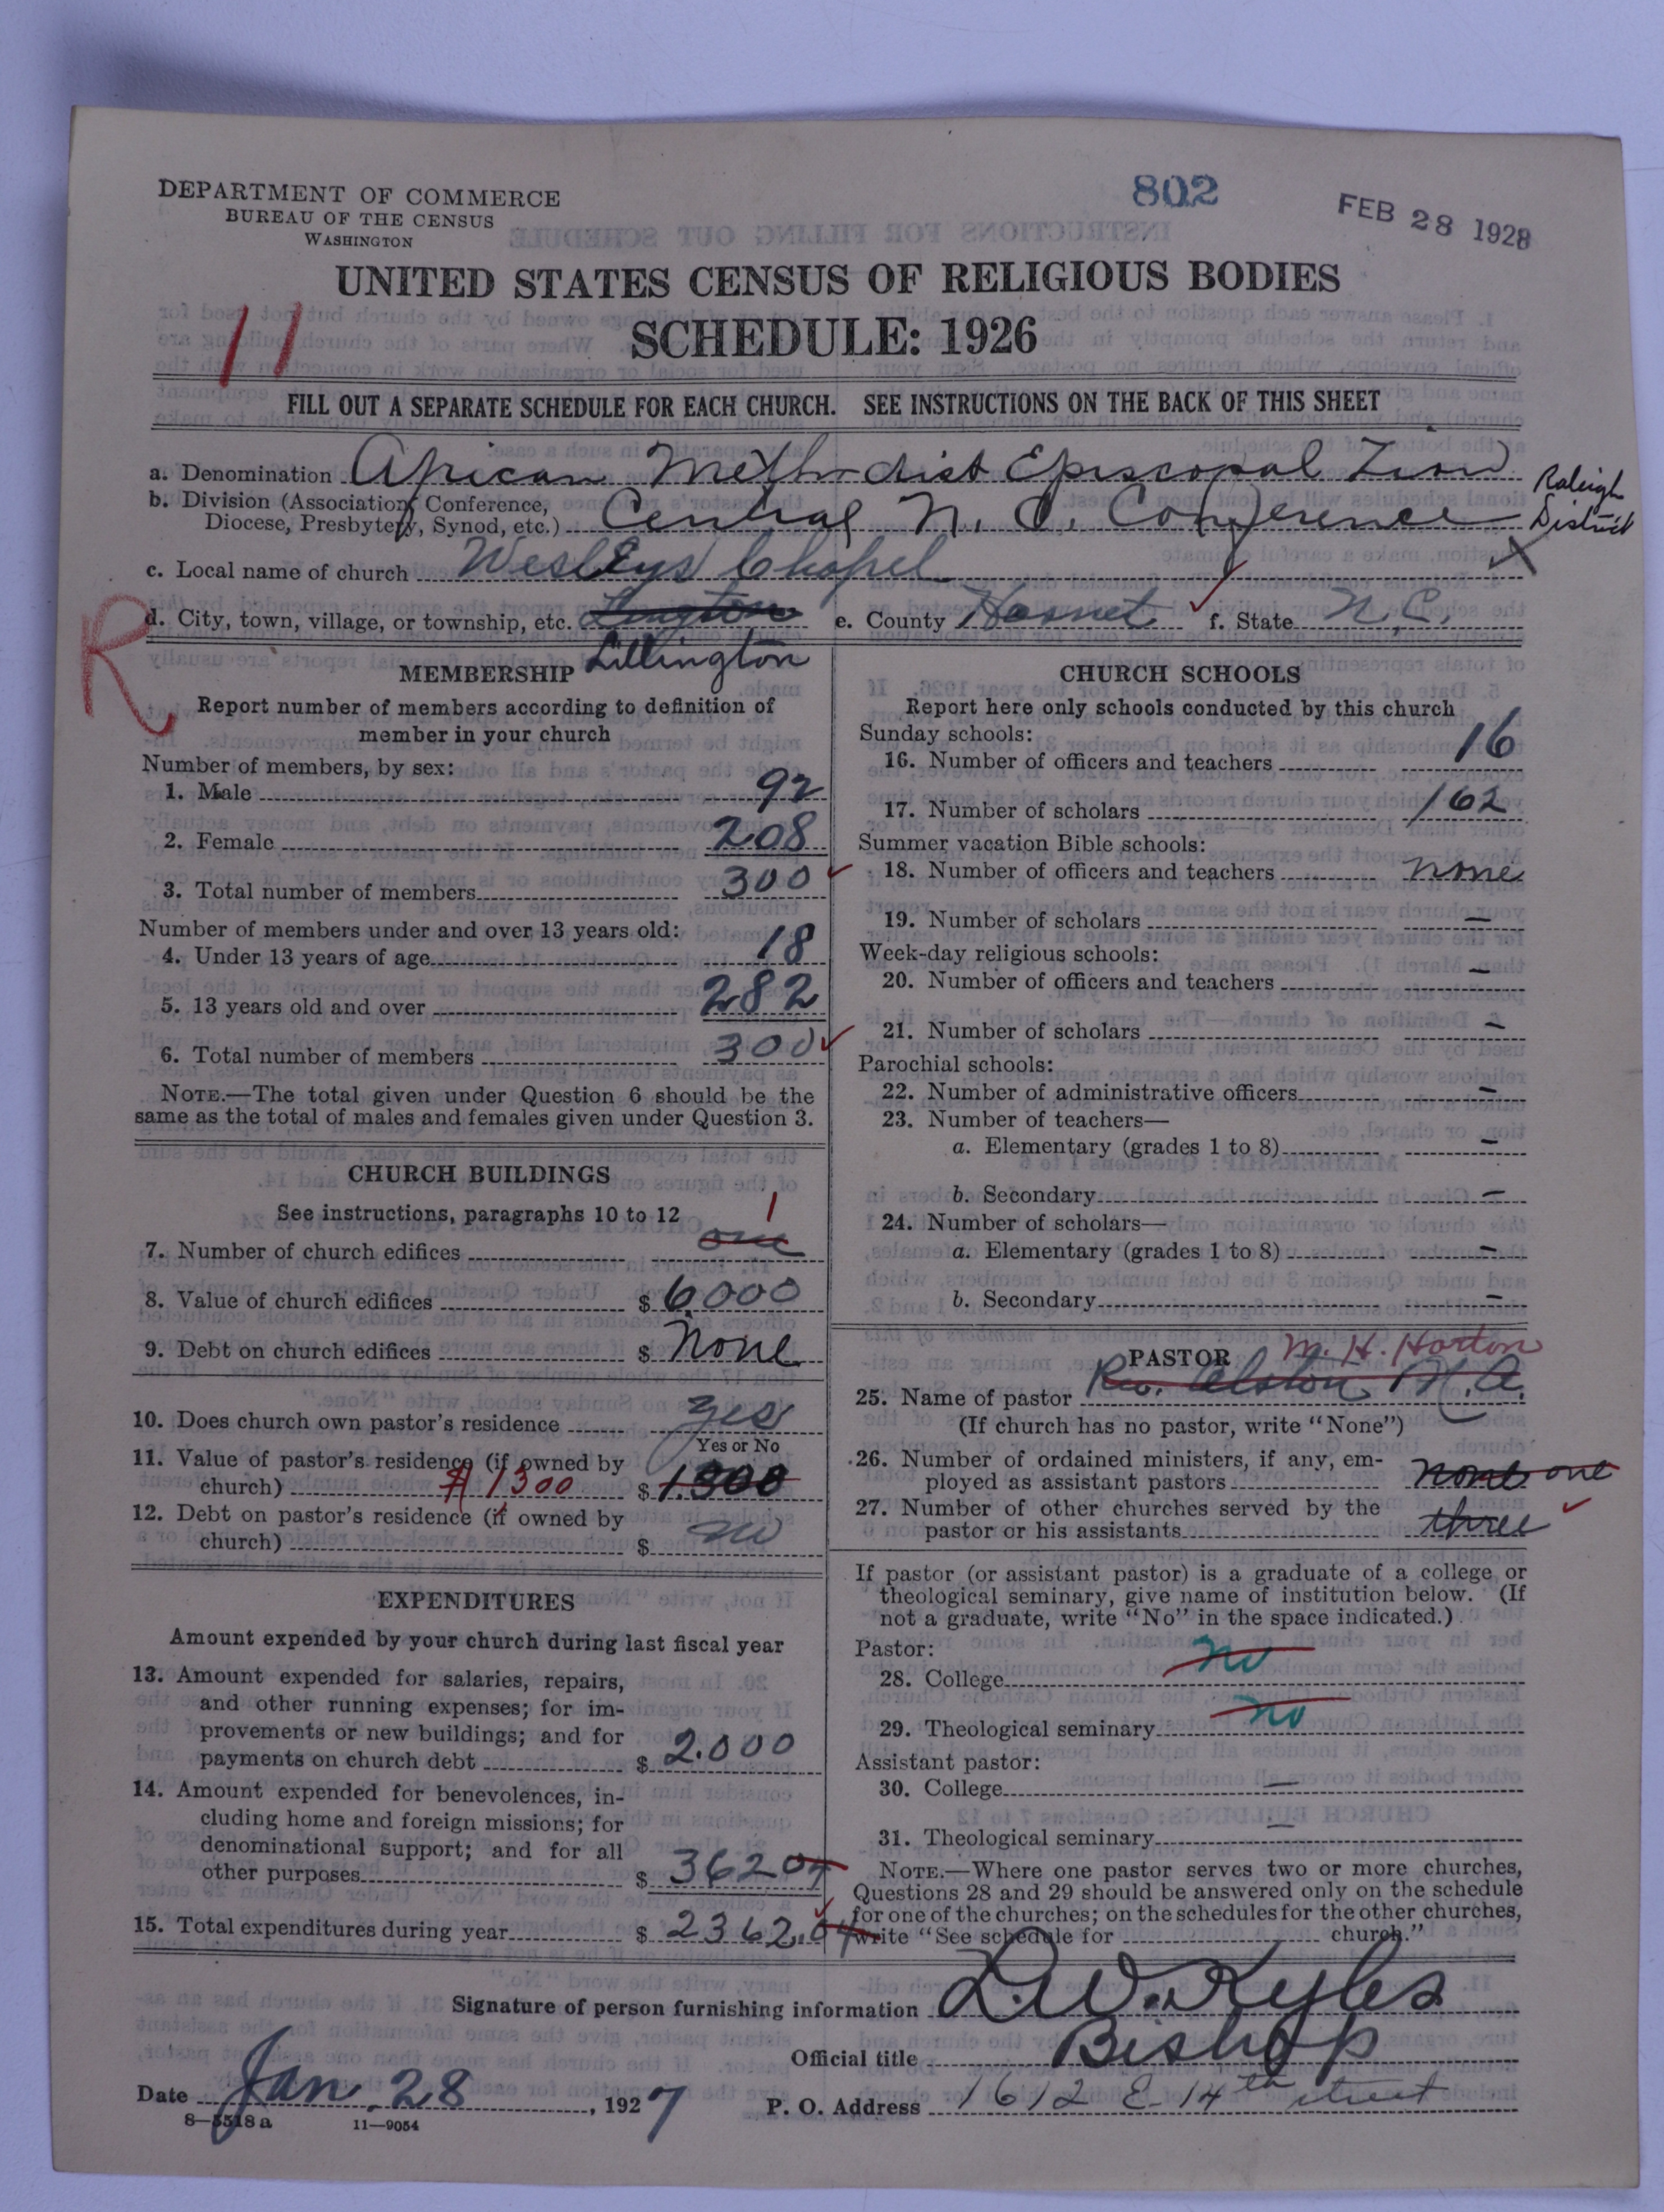 DEPARTMENT OF COMMERCE
BUREAU OF THE CENSUS
WASHINGTON
802
FEB 28 1928
UNITED STATES CENSUS OF RELIGIOUS BODIES
SCHEDULE: 1926
11
FILL OUT A SEPARATE SCHEDULE FOR EACH CHURCH. SEE INSTRUCTIONS ON THE BACK OF THIS SHEET
a. Denomination African Methodist Episcopal Zion
b. Division (Association, Conference, Diocese, Presbytery, Synod, etc.) Central N. C. Conference Raleigh District
c. Local name of church Wesleys Chapel
R
d. City, town, village, or township, etc. Lillington e. County Harnet f. State N.C.
MEMBERSHIP
Report number of members according to definition of
member in your church
Number of members, by sex:
1. Male 92
2. Female 208
3. Total number of members 300
Number of members under and over 13 years old:
4. Under 13 years of age 18
5. 13 years old and over 282
6. Total number of members 300
NOTE.—The total given under Question 6 should be the
same as the total of males and females given under Question 3.
CHURCH BUILDINGS
See instructions, paragraphs 10 to 12
7. Number of church edifices one 1
8. Value of church edifices $ 6000
9. Debt on church edifices $ None
10. Does church own pastor's residence yes
Yes or No
11. Value of pastor's residence (if owned by
church) $1300 $ 1.300
12. Debt on pastor's residence (if owned by
church) $ no
EXPENDITURES
Amount expended by your church during last fiscal year
13. Amount expended for salaries, repairs,
and other running expenses; for im-
provements or new buildings; and for
payments on church debt $ 2.000
14. Amount expended for benevolences, in-
cluding home and foreign missions; for
denominational support; and for all
other purposes $ 362 04
15. Total expenditures during year $ 2362.04
CHURCH SCHOOLS
Report here only schools conducted by this church
Sunday schools:
16. Number of officers and teachers 16
17. Number of scholars 162
Summer vacation Bible schools:
18. Number of officers and teachers none
19. Number of scholars —
Week-day religious schools:
20. Number of officers and teachers —
21. Number of scholars —
Parochial schools:
22. Number of administrative officers —
23. Number of teachers—
a. Elementary (grades 1 to 8) —
b. Secondary —
24. Number of scholars—
a. Elementary (grades 1 to 8) —
b. Secondary —
PASTOR M. H. Horton
25. Name of pastor Rev. Alston N. A.
(If church has no pastor, write "None")
26. Number of ordained ministers, if any, em-
ployed as assistant pastors none one
27. Number of other churches served by the
pastor or his assistants three
If pastor (or assistant pastor) is a graduate of a college or
theological seminary, give name of institution below. (If
not a graduate, write "No" in the space indicated.)
Pastor:
28. College no
29. Theological seminary no
Assistant pastor:
30. College —
31. Theological seminary —
NOTE.—Where one pastor serves two or more churches,
Questions 28 and 29 should be answered only on the schedule
for one of the churches; on the schedules for the other churches,
write "See schedule for church."
Signature of person furnishing information L. W. Kyles
Official title Bishop
Date Jan. 28, 1927
P. O. Address 1612 E. 14th street
8—5518 a 11—9054